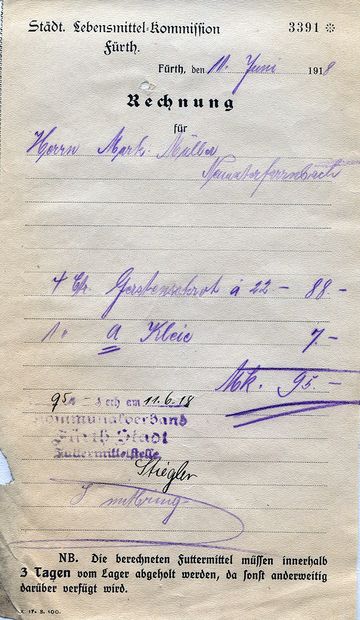 Städt. Lebensmittel-Kommission 3391 ※
Fürth.
Fürth, den 11. Juni 1918
Rechnung
für
Herrn Mark. Müller
4 Ctr. Gerstenschrot à 22 – 88 –
1 " a Kleie 7. –
Mk. 95 –
95 M am 11.6.18
Kommunalverband
Fürth Stadt
Futtermittelstelle
Stiegler
NB. Die berechneten Futtermittel müssen innerhalb
3 Tagen vom Lager abgeholt werden, da sonst anderweitig
darüber verfügt wird.
17. 8. 100.